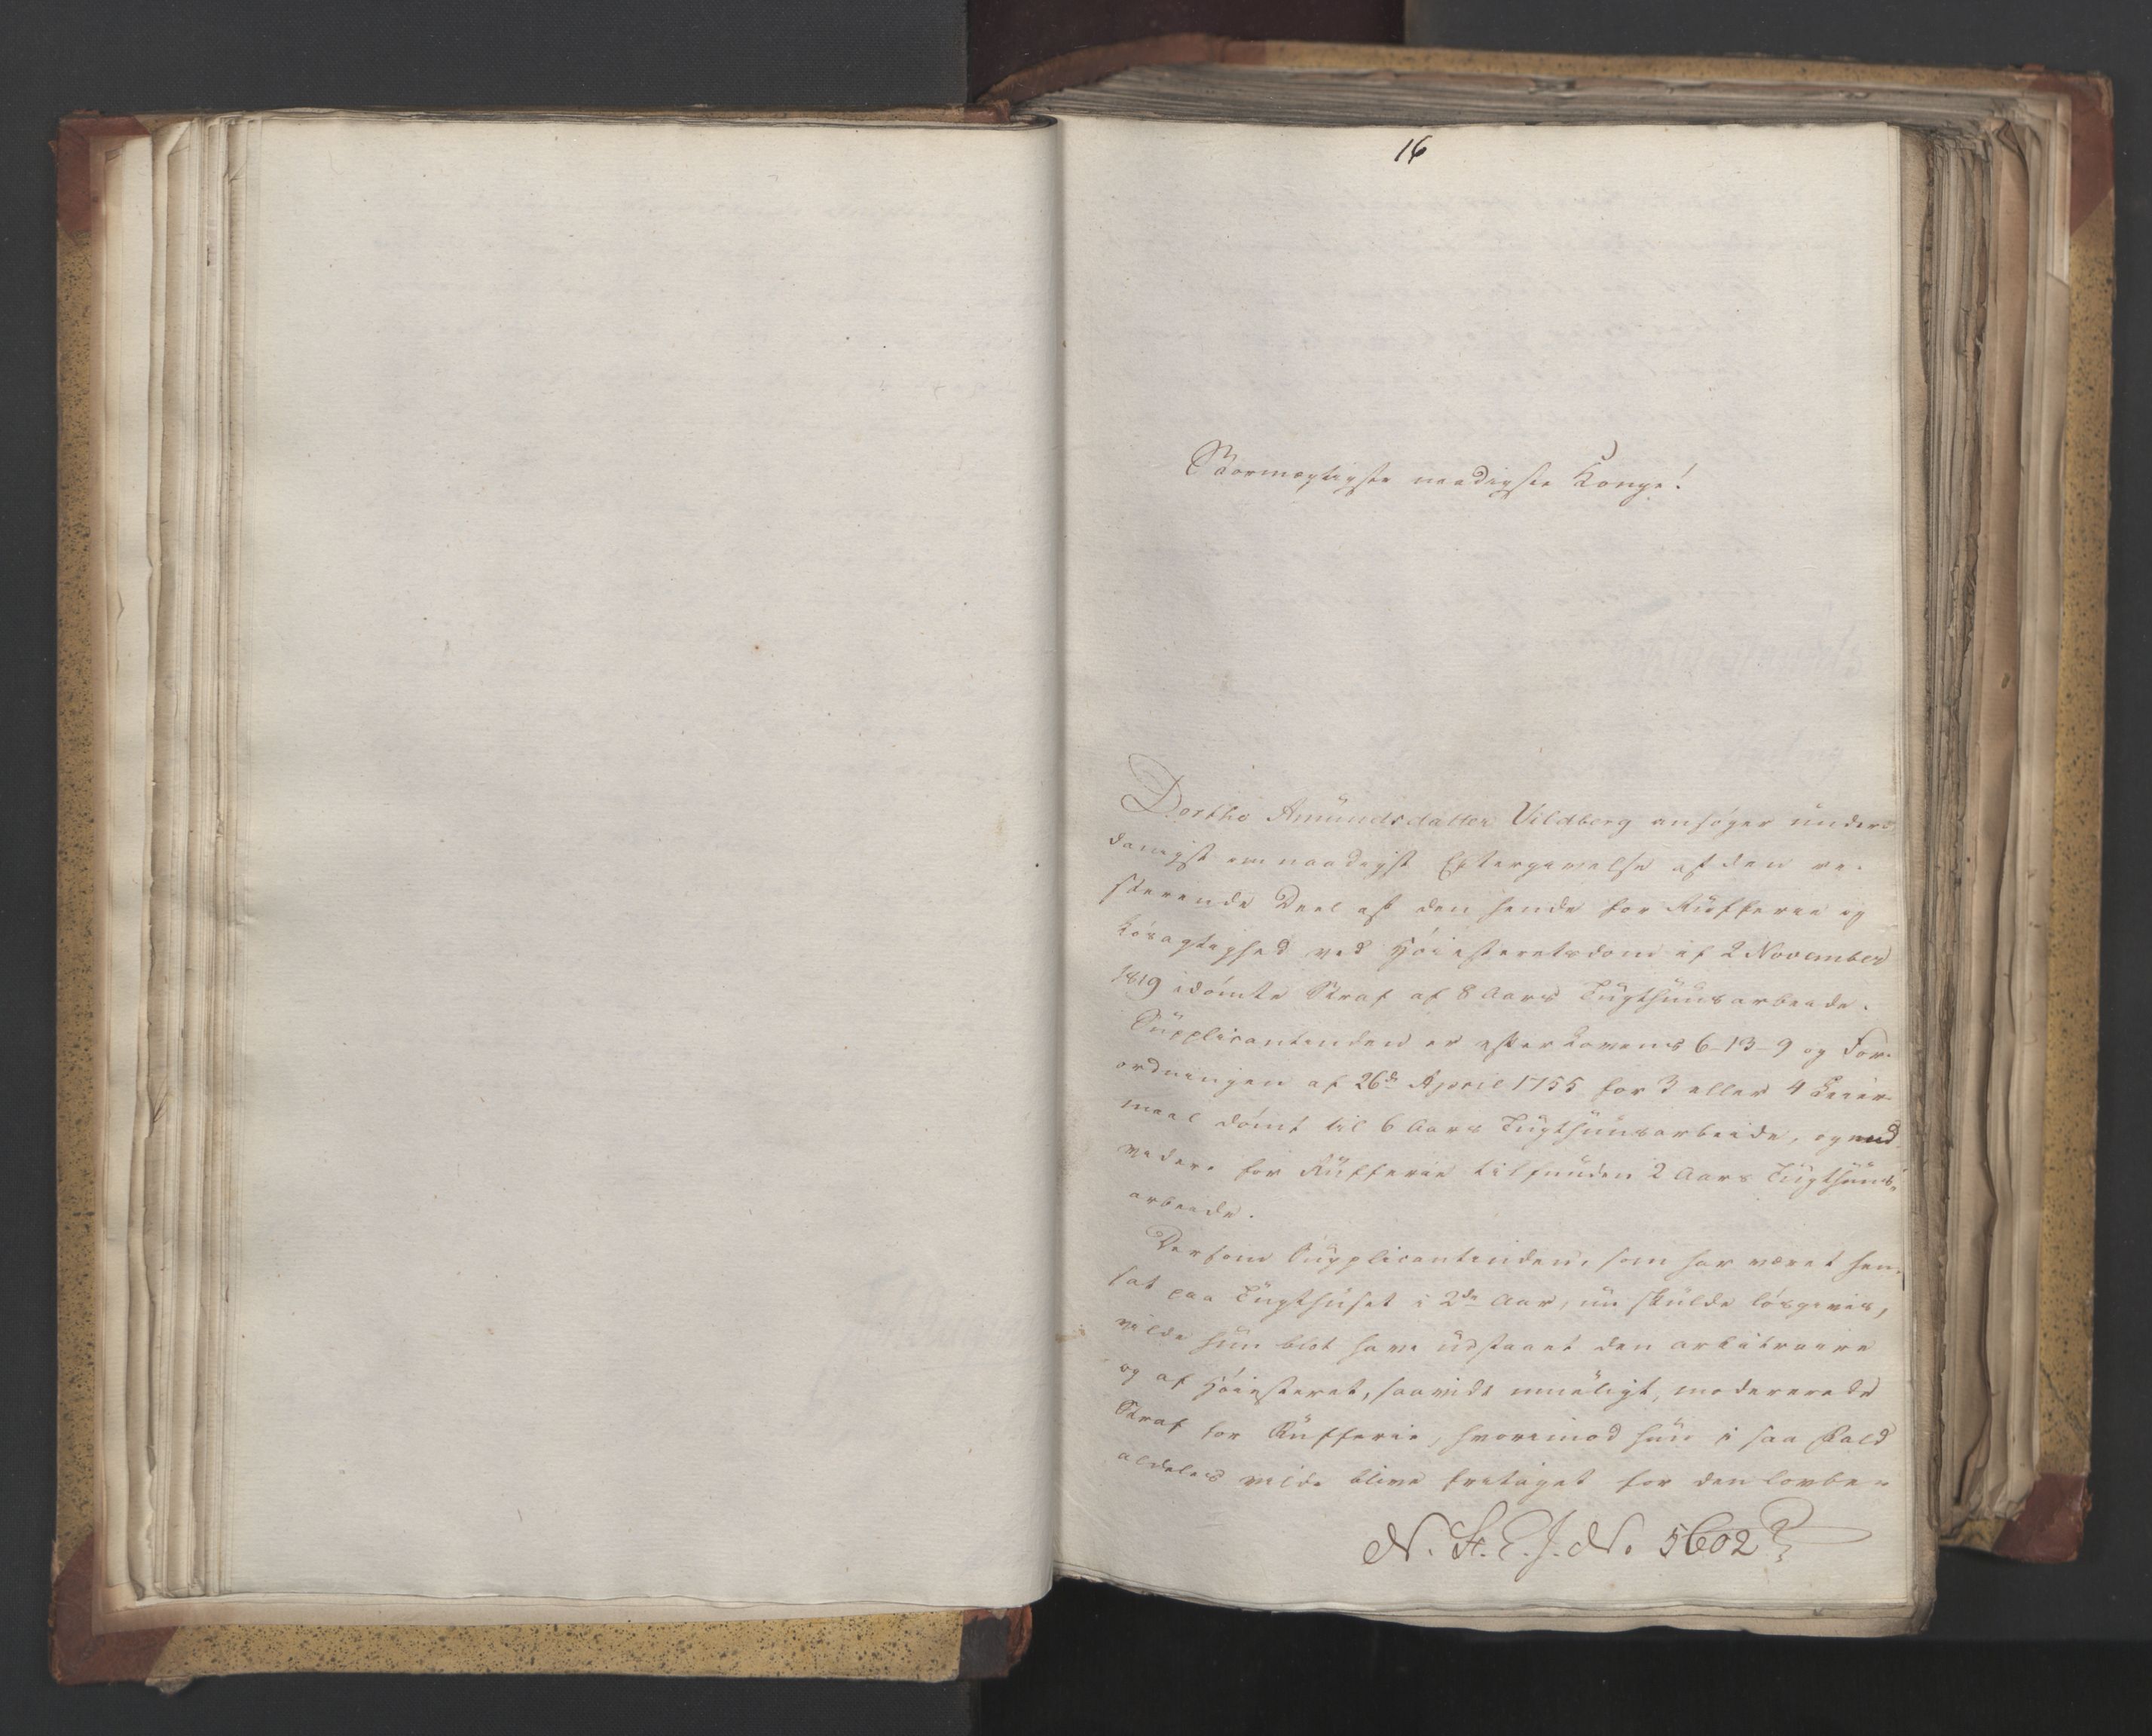 16
Stormægtigste naadigste Konge!
Dorthe Amundsdatter Vildberg ansøger under-
danigst om naadigst Eftergivelse af den re-
sterende Deel af den hende for Rufferie og
Løsagtighed ved Høiesteretsdom af 2 November
1819 idømte Straf af 8 Aars Tugthuusarbeide.
Supplicantinden er efter Lovens 6-13-9 og For-
ordningen af 26de April 1755 for 3 eller 4 Leier-
maal dømt til 6 Aars Tugthuusarbeide, og end
videre for Rufferie tilfunden 2 Aars Tugthuus-
arbeide.
Dersom Supplicantinden, som har været hen-
sat paa Tugthuset i 2de Aar, nu skulde løsgives,
vilde hun blot have udstaaet den arbitraire
og af Høiesteret, saavidt mueligt, modererede
Straf for Rufferie, hvorimod hun i saa Fald
aldeles vilde blive fritaget for den lovbe-
N. St. E. J. N. 5602